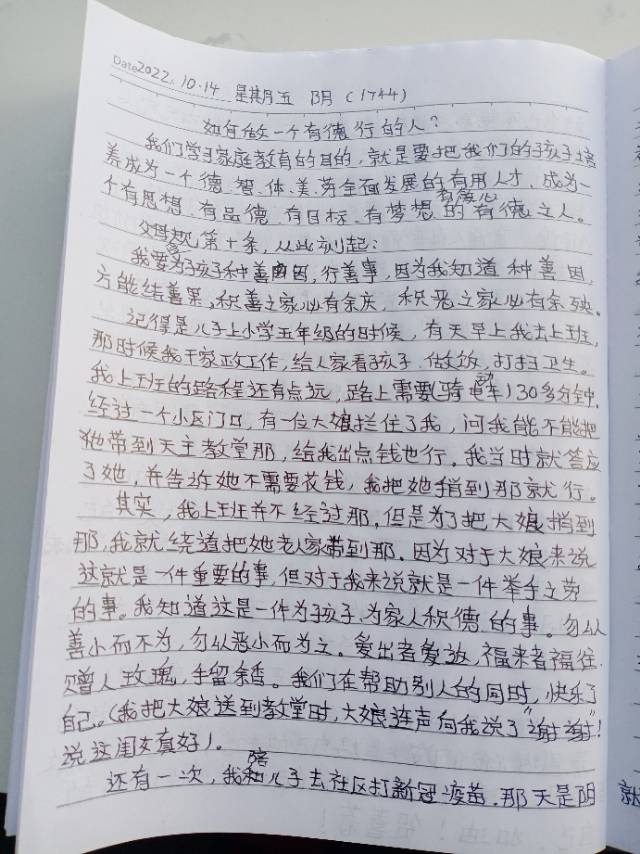 Date 2022.10.14 星期五 阴(1744)
如何做一个有德行的人?
我们学习家庭教育的目的,就是要把我们的孩子培
养成为一个德、智、体、美、劳全面发展的有用人才,成为一
个有思想、有品德、有目标、有梦想、有爱心的有德之人。
父母规第十条,从此刻起:
我要为孩子种善因,行善事,因为我知道种善因,
方能结善果,积善之家必有余庆,积恶之家必有余殃。
记得是儿子上小学五年级的时候,有天早上我去上班,
那时候我干家政工作,给人家看孩子、做饭,打扫卫生。
我上班的路程还有点远,路上需要(骑电车)30多分钟。
经过一个小区门口,有一位大娘拦住了我,问我能不能把
她带到天主教堂那,给我出点钱也行。我当时就答应
了她,并告诉她不需要花钱,我把她捎到那就行。
其实,我上班并不经过那,但是为了把大娘捎到
那,我就绕道把她老人家带到那。因为对于大娘来说
这就是一件重要的事,但对于我来说就是一件举手之劳
的事。我知道这是一件为孩子、为家人积德的事。勿以
善小而不为,勿以恶小而为之。爱出者爱返,福来者福往.
赠人玫瑰,手留余香。我们在帮助别人的同时,快乐了
自己。(我把大娘送到教堂时,大娘连声向我说了"谢谢"!
说这闺女真好)。
还有一次,我陪儿子去社区打新冠疫苗.那天是阴